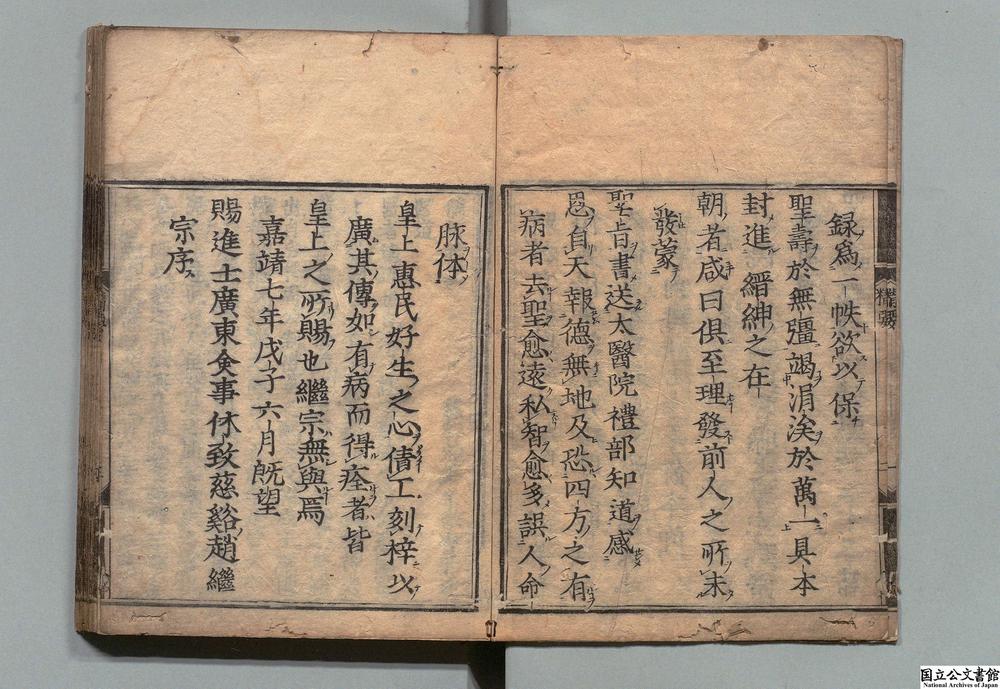 録為一帙欲以保
聖壽於無疆竭涓涘於萬一具本
封進縉紳之在
朝者咸曰俱至理發前人之所未
發蒙
聖旨書送太醫院禮部知道感
恩自天報德無地及恐四方之有
病者去聖愈遠私智愈多誤人命
脉体
皇上惠民好生之心倩工刻梓以
廣其傳如有病而得痊者皆
皇上之所賜也繼宗無與焉
嘉靖七年戊子六月既望
賜進士廣東僉事休致慈谿趙繼
宗序
国立公文書館
National Archives of Japan